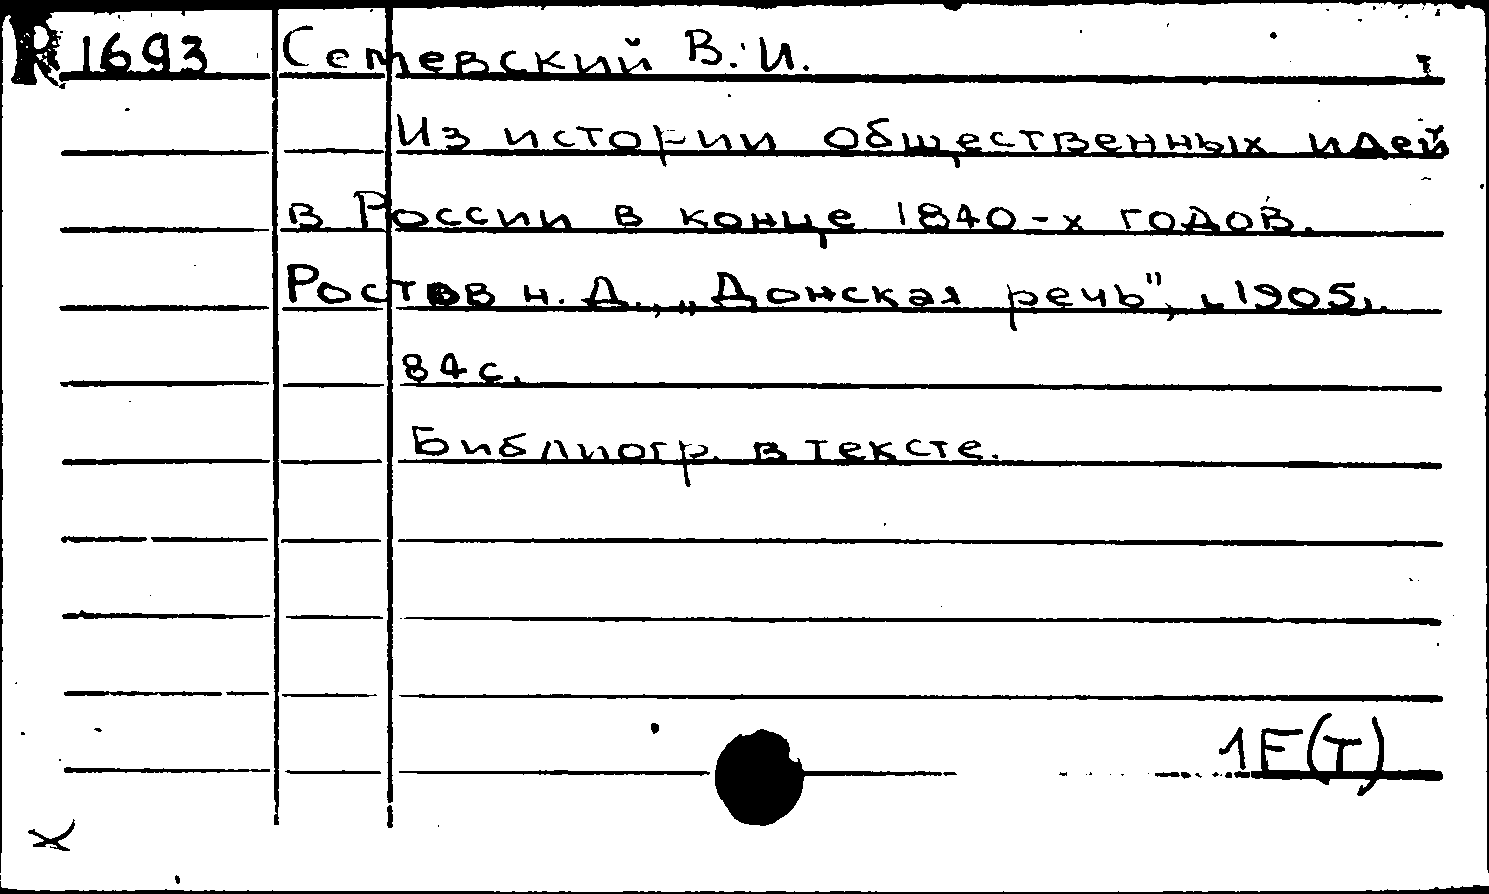 R 1693 Семевский В.И.
Из истории общественных идей
в России в конце 1840-х годов.
Ростов н. Д., „Донская речь", 1905.
84 с.
Библиогр. в тексте.
1E(T)